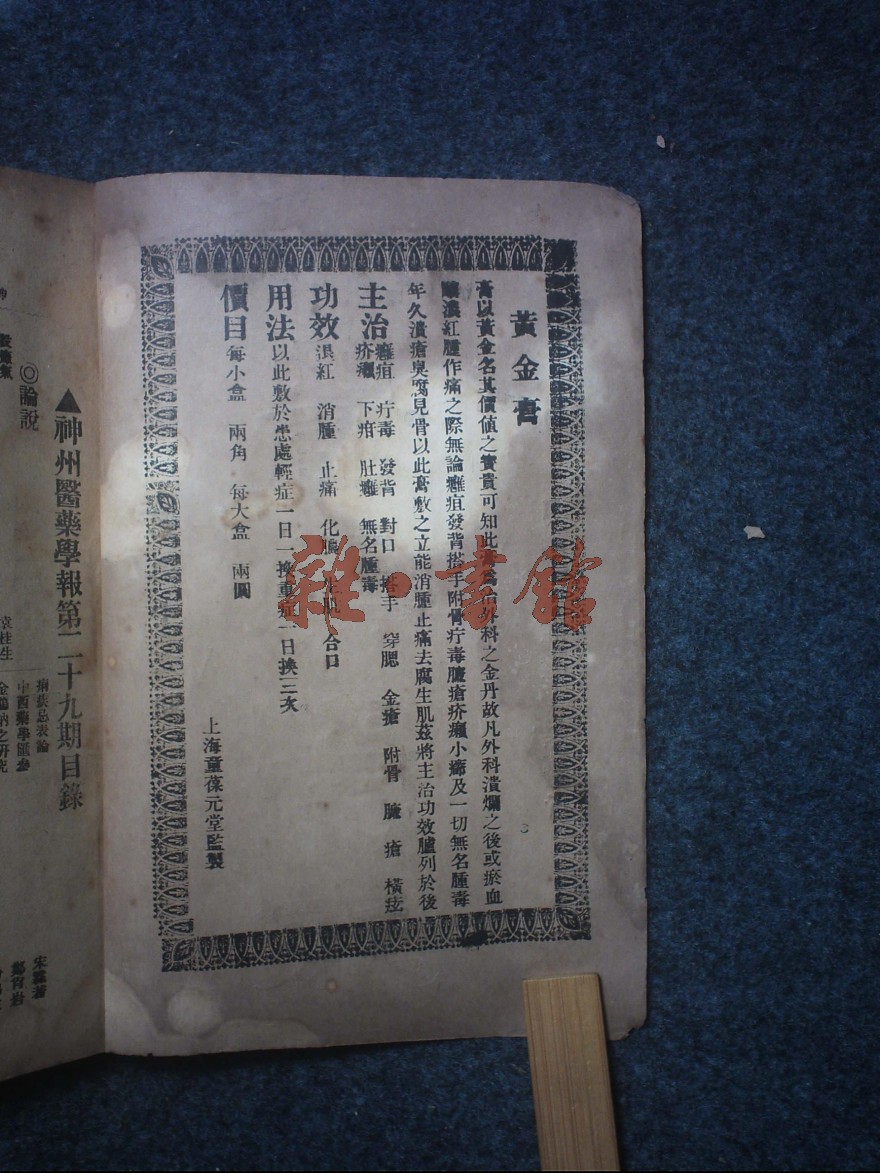 黃金膏
膏以黃金名其價值之寶貴可知此膏為治外科之金丹故凡外科潰爛之後或瘀血
膿潰紅腫作痛之際無論癰疽發背搭手附骨疔毒臁瘡疥癩小癤及一切無名腫毒
年久潰瘡臭腐見骨以此膏敷之立能消腫止痛去腐生肌茲將主治功效臚列於後
主治 癰疽 疔毒 發背 對口 搭手 穿腮 金瘡 附骨 臁瘡 橫痃
疥癩 下疳 肚癰 無名腫毒
功效 退紅 消腫 止痛 化膿 生肌 合口
用法 以此敷於患處輕症一日一換重症一日換三次
價目 每小盒 兩角 每大盒 兩圓
上海童葆元堂監製
▲神州醫藥學報第二十九期目錄
◎論說
痢疾忌表論
中西藥學匯參
袁桂生
鄭肯岩
雜·書館